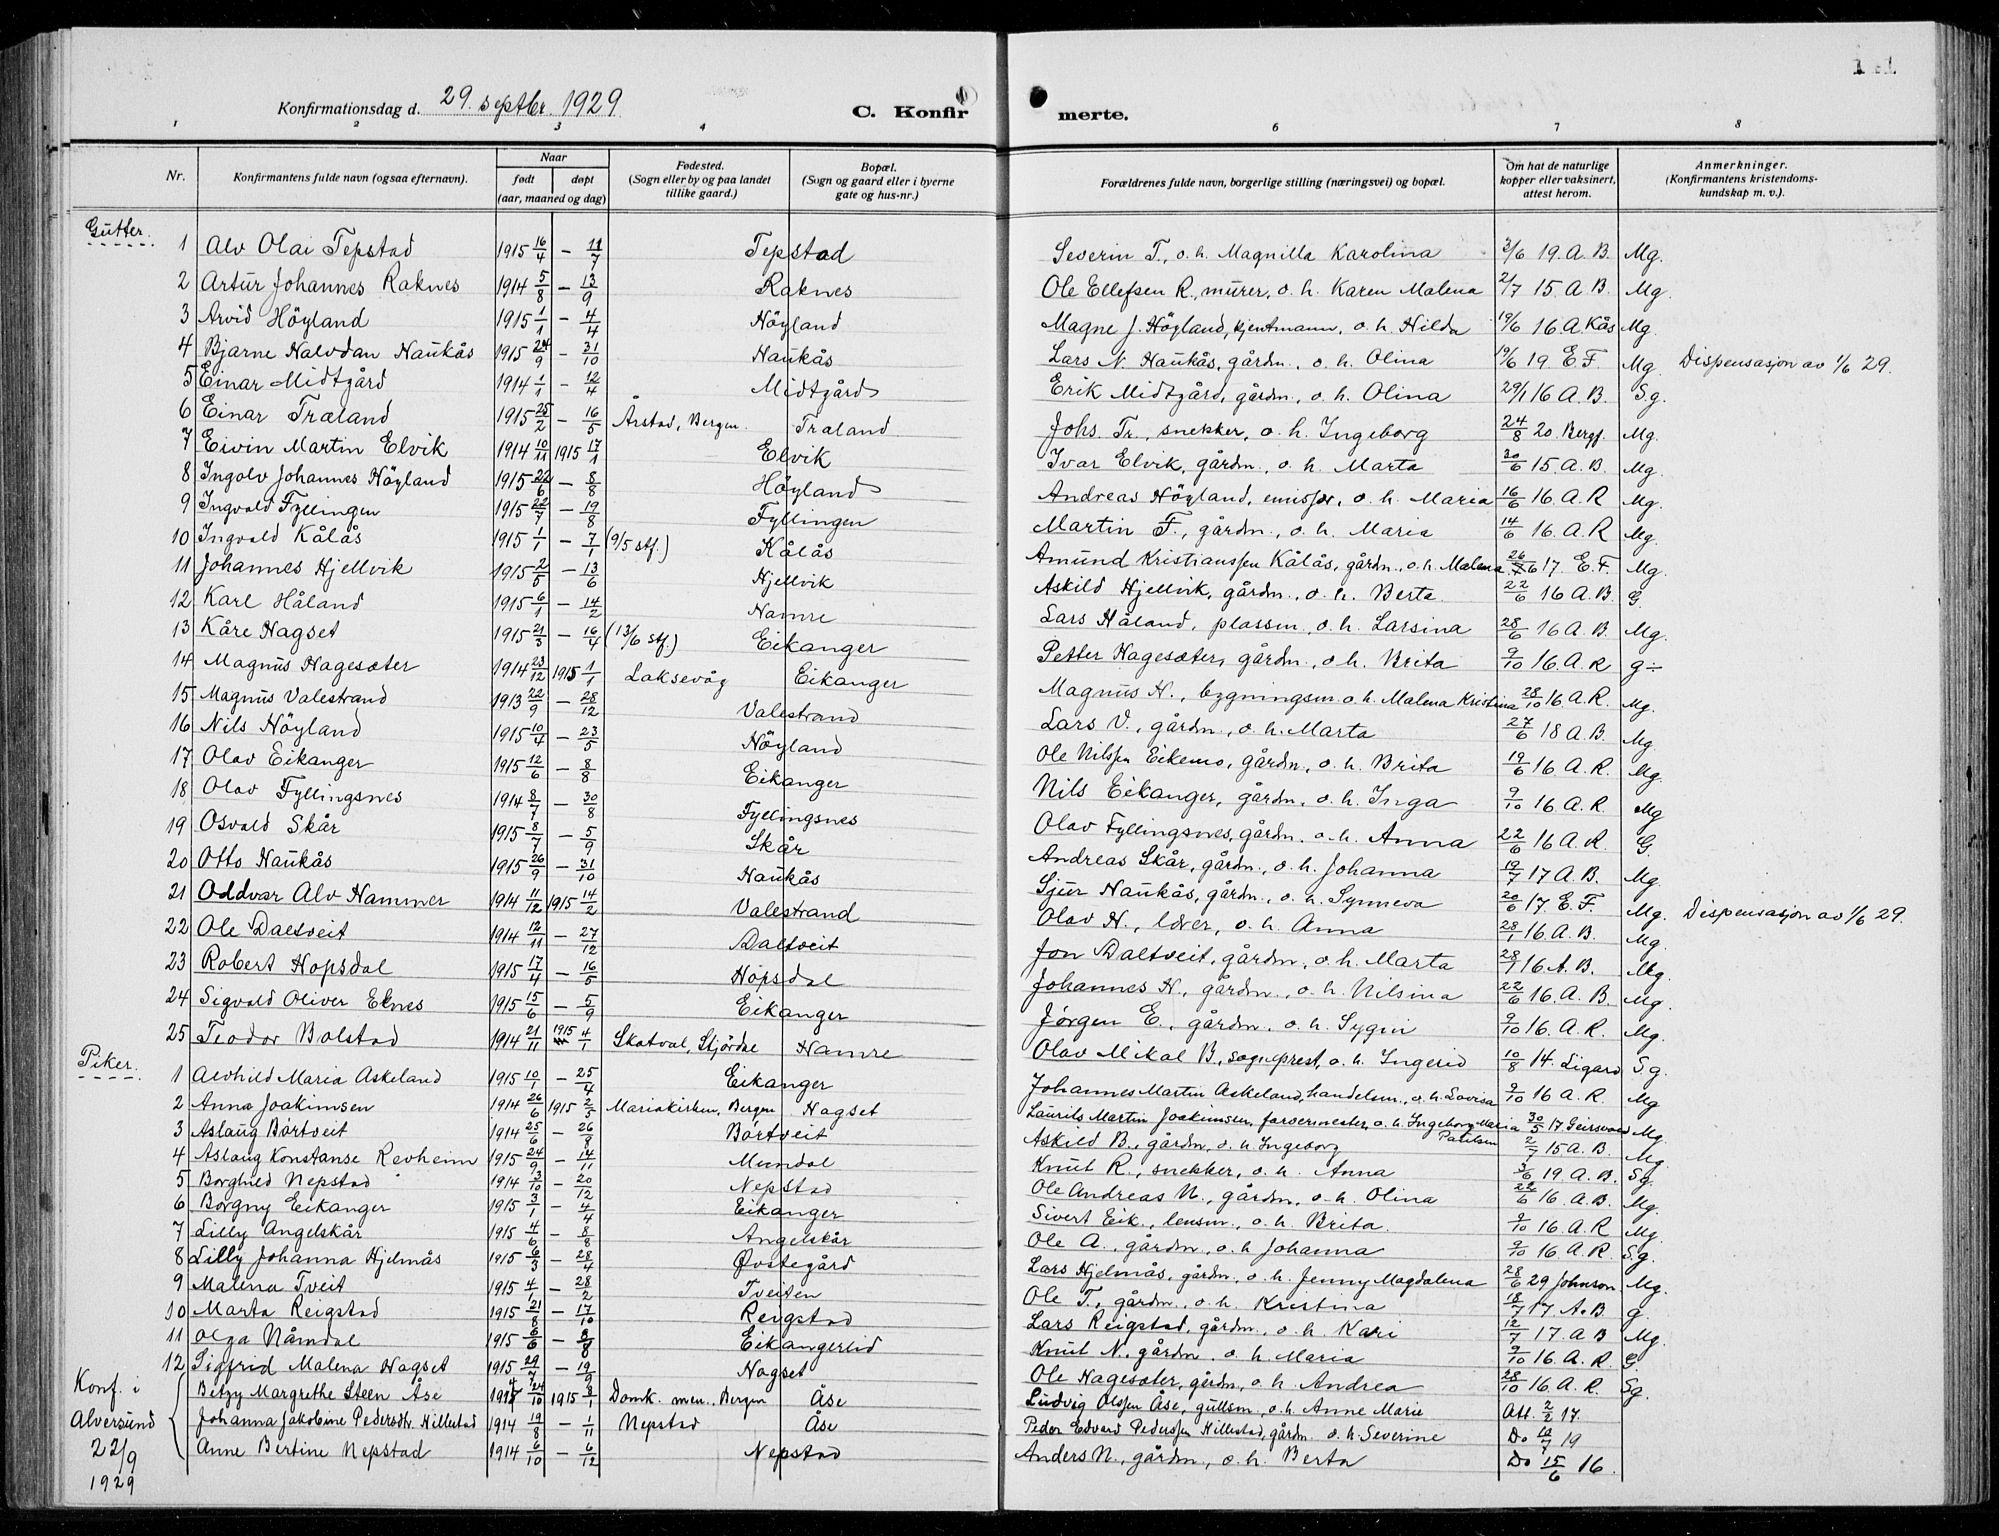 Konfirmationsdag d. 29. septbr. 1929 C. Konfirmerte.
1 2 3 4 6 7 8
Nr. Konfirmantens fulde navn (ogsaa efternavn). Naar født døpt (aar, maaned og dag) Fødested. (Sogn eller by og paa landet tillike gaard.) Bopæl. (Sogn og gaard eller i byerne gate og hus-nr.) Forældrenes fulde navn, borgerlige stilling (næringsvei) og bopæl. Om hat de naturlige kopper eller vaksinert, attest herom. Anmerkninger. (Konfirmantens kristendomskundskap m. v.).
Gutter.
1 Alv Olai Tepstad 1915 16/4 – 11/7 Tepstad Severin T., o.h. Magnilla Karolina 3/6 19. A. B. Mg.
2 Artur Johannes Raknes 1914 5/8 – 13/9 Raknes Ole Ellefsen R., murer, o. h. Karen Malena 2/7 15. A. B. Mg.
3 Arvid Höyland 1915 1/1 – 4/4 Höyland Magne J. Höyland, kjentmann, o. h. Hilda 19/6 16. A Kås Mg.
4 Bjarne Halvdan Haukås 1915 24/9 – 31/10 Haukås Lars N. Haukås, gårdm., o. h. Olina 19/6 19 E. F. Mg. Dispensasjon av 1/6 29.
5 Einar Midtgård 1914 1/1 – 12/4 Midtgård Erik Midtgård, gårdm., o. h. Olina 29/1 16 A. B. Sg.
6 Einar Træland 1915 25/2 – 16/5 Årstad, Bergen. Træland Johs. Tr., snekker, o. h. Ingeborg 24/8 20. Bergf. Mg.
7 Eivin Martin Elvik 1914 10/11 1915 17/1 Elvik Ivar Elvik, gårdm., o. h. Marta 30/6 15. A. B. Mg.
8 Ingolv Johannes Höyland 1915 22/6 – 8/8 Höyland Andreas Höyland, emissær, o. h. Maria 16/6 16. A. R Mg.
9 Ingvald Fyllingen 1915 22/7 – 19/8 Fyllingen Martin F., gårdm., o. h. Maria 14/6 16. A. R Mg.
10 Ingvald Kålås 1915 1/1 – 7/1 (9/5 stf.) Kålås Amund Kristianssen Kålås, gårdm., o. h. Malena 26/6 17. E. F. Mg.
11 Johannes Hjellvik 1915 2/5 – 13/6 Hjellvik Askild Hjellvik, gårdm., o. h. Berta. 22/6 16 A. B. G.
12 Karl Håland 1915 6/1 – 14/2 Hamre Lars Håland, plassm., o. h. Larsina 28/6 16 A. B. Mg.
13 Kåre Hagset 1915 21/3 – 16/4 (13/6 stf.) Eikanger Petter Hagesæter, gårdm., o. h. Brita 9/10 16. A. R g÷
14 Magnus Hagesæter 1914 23/12 1915 1/1 Laksevåg Eikanger Magnus H., bygningsm. o. h. Malena Kristina 28/10 16 A. R. Mg.
15 Magnus Valestrand 1913 22/9 – 28/12 Valestrand Lars V., gårdm., o. h. Marta 27/6 18 A. B. Mg.
16 Nils Höyland 1915 10/4 – 23/5 Höyland Ole Nilssen Eikemo, gårdm., o. h. Brita 19/6 16. A. R. Mg.
17 Olav Eikanger 1915 12/6 – 8/8 Eikanger Nils Eikanger, gårdm., o. h. Inga 9/10 16 A. R. Mg
18 Olav Fyllingsnes 1914 8/7 – 30/8 Fyllingsnes Olav Fyllingsnes, gårdm. o. h. Anna 22/6 16 A. R. G.
19 Osvald Skår 1915 8/7 – 5/9 Skår Andreas Skår, gårdm., o. h. Johanna 19/7 17 A. B. Mg.
20 Otto Haukås 1915 26/9 – 31/10 Haukås Sjur Haukås, gårdm., o. h. Synneva 20/6 17. E. F. Mg. Dispensasjon av 1/6 29.
21 Oddvar Alv Hammer 1914 11/12 1915 14/2 Valestrand Olav H., lærer, o. h. Anna 28/1 16. A. B. Mg.
22 Ole Daltveit 1914 12/11 – 27/12 Daltveit Jon Daltveit, gårdm., o. h. Marta 28/7 16 A. B. Mg.
23 Robert Hopsdal 1915 17/4 – 16/5 Hopsdal Johannes H., gårdm., o. h. Nilsina 22/6 16. A. B. Mg.
24 Sigvald Oliver Eknes 1915 15/6 – 5/9 Eikanger Jørgen E., gårdm., o. h. Sygni 9/10 16. A. R. Mg.
25 Teodor Bolstad 1914 21/11 1915 4/1 Skatval, Stjördal Hamre Olav Mikal B., sogneprest, o. h. Ingerid 10/8 14. Ligard Sg.
Piker.
1 Alvhild Maria Askeland 1915 10/1 – 25/4 Eikanger Johannes Martin Askeland, handelsm., o. h. Lovisa 9/10 16 A. R. Mg
2 Anna Joakimsen 1914 26/6 1915 2/5 Mariakirken, Bergen Hagset Laurits Martin Joakimsen, farvermester, o. h. Ingeborg Maria Paulsen 30/5 17 Geirsvold Mg.
3 Aslaug Børtveit 1914 25/6 – 26/8 Børtveit Askild B., gårdm, o. h. Ingeborg 2/7 15 A. B. Mg.
4 Aslaug Konstanse Revheim 1915 24/9 – 14/11 Mundal Knut R., snekker, o. h. Anna 3/6 19 A. B. Sg.
5 Borghild Nepstad 1914 3/10 – 20/12 Nepstad Ole Andreas N., gårdm., o. h. Olina 22/6 16 A. B. Mg.
6 Borgny Eikanger 1915 3/1 – 4/4 Eikanger Sivert Eik., lensm., o. h. Brita. 9/10 16. A. R Mg.
7 Lilly Angelskår 1915 4/6 – 8/8 Angelskår Ole A., gårdm, o. h Johanna 9/10 16 A. R. Sg.
8 Lilly Johanna Hjelmås 1915 6/3 – 28/4 Øvstegård Lars Hjelmås, gårdm, o. h. Jenny Magdalena 28/6 29 Johnson. Mg.
9 Malena Tveit 1915 4/1 – 28/2 Tveiten Ole T., gårdm., o. h. Kristina 18/7 17 A. B. g.
10 Marta Reigstad 1915 21/8 – 17/10 Reigstad Lars Reigstad, gårdm., o. h. Kari 12/7 17. A B Mg.
11 Olga Nåmdal 1915 6/6 – 8/8 Eikangerlid Knut N. gårdm. o. h. Maria 9/10 16. A. R. G.
12 Sigfrid Malena Hagset 1915 29/7 – 19/9 Hagset Ole Hagesæter, gårdm., o. h. Andrea 28/10 16. A. R. Sg.
Konf. i Alversund 22/9 1929
Betzy Margrethe Steen Åse 1914 24/10 1915 8/1 Domk. men., Bergen Åse Ludvig Olssen Åse, gullsm., o. h. Anne Marie Att. 2/2 17.
Johanna Jakobine Pedersdtr. Hillestad 1914 19/8 – 1/11 Nepstad Åse Peder Edvard Pederssen Hillestad, gårdm. o. h. Severine Do 10/7 19
Anne Bertine Nepstad 1914 6/10 – 6/12 Nepstad Anders N., gårdm., o. h. Berta Do 15/6 16.